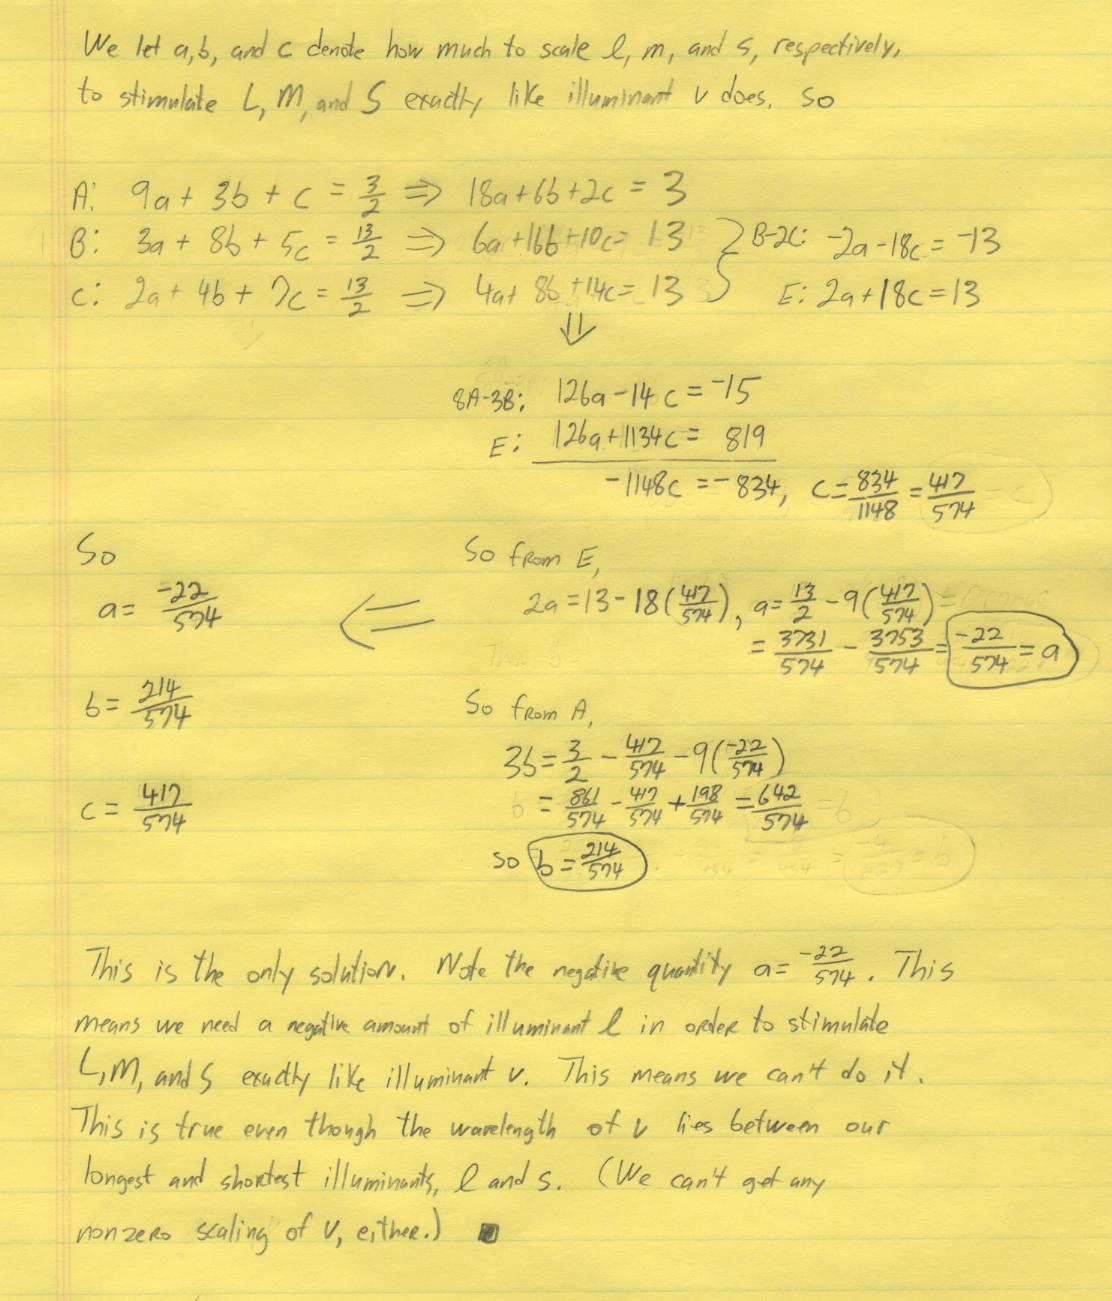 We let a, b, and c denote how much to scale l, m, and s, respectively,
to stimulate L, M, and S exactly like illuminant v does. So
A: 9a + 3b + c = 3/2 ⇒ 18a + 6b + 2c = 3
B: 3a + 8b + 5c = 13/2 ⇒ 6a + 16b + 10c = 13 } B-2C: -2a - 18c = -13
C: 2a + 4b + 7c = 13/2 ⇒ 4a + 8b + 14c = 13 E: 2a + 18c = 13
⇓
8A-3B: 126a - 14c = -15
E: 126a + 1134c = 819
-1148c = -834, c = 834/1148 = 417/574 = c
So
a = -22/574
b = 214/574
c = 417/574
⇐
So from E,
2a = 13 - 18(417/574), a = 13/2 - 9(417/574) =
= 3731/574 - 3753/574 = -22/574 = a
So from A,
3b = 3/2 - 417/574 - 9(-22/574)
= 861/574 - 417/574 + 198/574 = 642/574
so b = 214/574
This is the only solution. Note the negative quantity a = -22/574. This
means we need a negative amount of illuminant l in order to stimulate
L, M, and S exactly like illuminant v. This means we can't do it.
This is true even though the wavelength of v lies between our
longest and shortest illuminants, l and s. (We can't get any
nonzero scaling of v, either.)